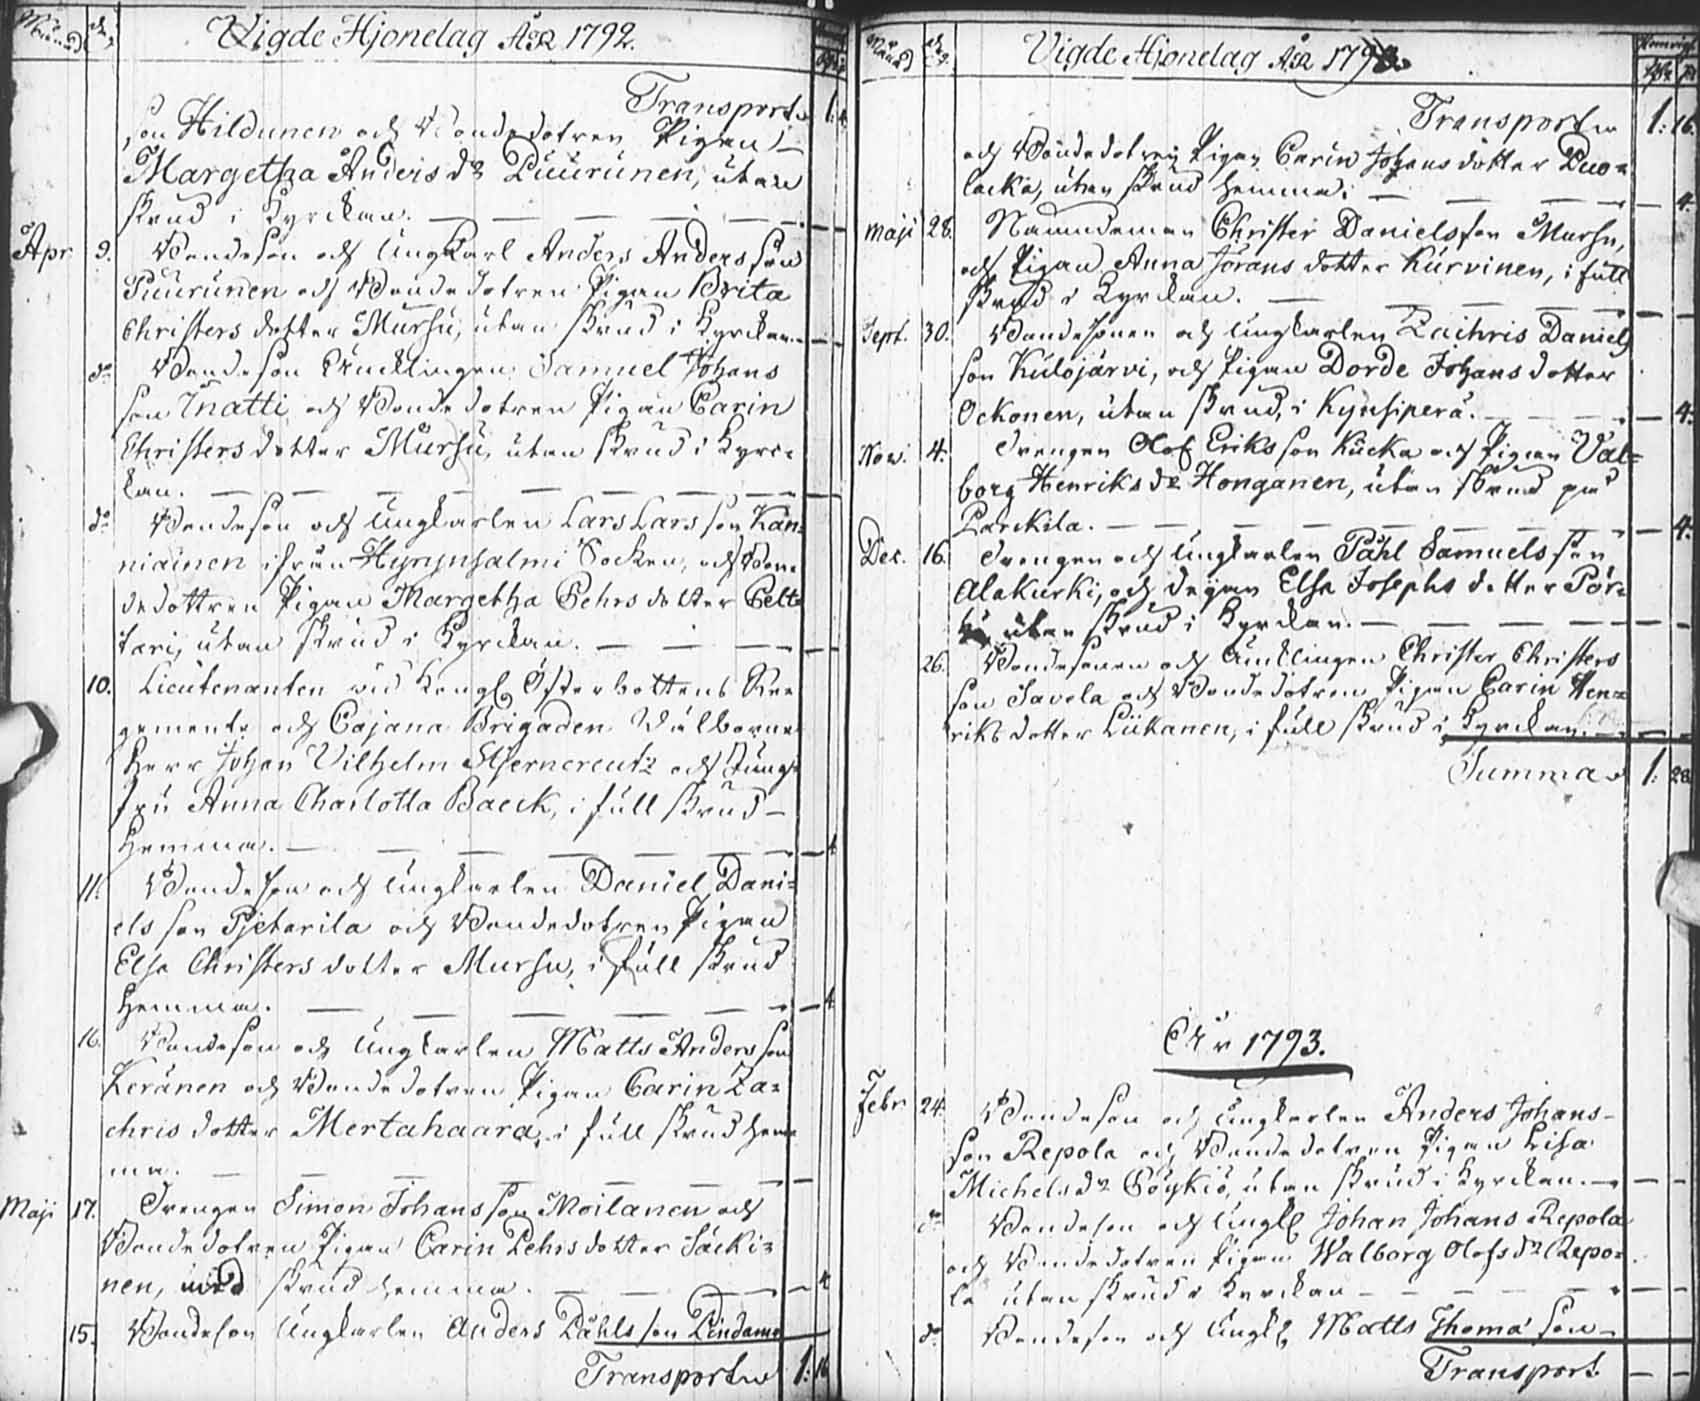 Månad
Vigde Hjonelag ÅR 1792.
Transport 1: 4
son Hildunen och Bondedotren Pigan
Margetha Anders dr Puurunen, utan
skrud i Kyrckan.
Apr 9. Bondeson och Ungkarl Anders Anders son
Puurunen och Bondedotren Pigan Brita
Christers dotter Mursu, utan skrud i Kyrckan.
do Bondeson Encklingen Samuel Johans
son Tnatti och Bondedotren Pigan Carin
Christers dotter Mursu, utan skrud i Kyrc-
kan.
do Bondeson och Ungkarlen Lars Lars son Kän-
niainen ifrån Hyrynsalmi Socken, och Bon-
dedottren Pigan Margetha Pehrs dotter Pelt-
tari, utan skrud i Kyrckan.
10. Lieutenanten vid Kongl Österbottens Re-
gemente och Cajana Brigaden Välborne
Herr Johan Vilhelm Stjerncreutz och Jung-
fru Anna Charlotta Baeck, i full skrud
hemma. 4
11. Bondeson och Ungkarlen Daniel Dani-
els son Pjetarila och Bondedotren Pigan
Elsa Christers dotter Mursu, i full skrud
hemma. 4
16. Bondeson och Ungkarlen Matts Anders son
Keränen och Bondedotren Pigan Carin Za-
chris dotter Mertahaara, i full skrud hem-
ma.
Maji 17. Drengen Simon Johans son Moilanen och
Bondedotren Pigan Carin Pehrs dotter Säcki-
nen, med skrud hemma. 4
15. Bondeson Ungkarlen Anders Påhls son Pindamo
Transport 1: 16
Månad
Vigde Hjonelag ÅR 179
Transport 1: 16.
och Bondedotren Pigan Carin Johans dotter Duo-
lacka, utan skrud hemma. 4.
Maji 28. Nämndeman Christer Daniels son Mursu,
och Pigan Anna Jörans dotter Kurvinen, i full
skrud i Kyrckan.
Sept. 30. Bondesonen och Ungkarlen Zachris Daniels
son Kulojärvi, och Pigan Dorde Johans dotter
Ockonen, utan skrud, i Kynsiperä. 4.
Nov. 4. Drengen Olof Eriks son Kucka och Pigan Val-
borg Henriks dr Honganen, utan skrud på
Larckila. 4.
Dec. 16. Drengen och Ungkarlen Påhl Samuels son
Alakurki, och Pigan Elsa Josephs dotter Pör-
utan skrud i Kyrckan.
26. Bondesonen och Encklingen Christer Christers
son Savela och Bondedotren Pigan Carin Hen-
riks dotter Liikanen, i full skrud i Kyrckan.
Summa 1: 28
År 1793.
Febr 24. Bondeson och Ungkarlen Anders Johans-
son Repola och Bondedotren Pigan Lisa
Michels dr Pöykiö, utan skrud i Kyrckan.
do Bondeson och Ungkl Johan Johans Repola
och Bondedotren Pigan Walborg Olofs dr Repo-
la utan skrud i Kyrckan
do Bondeson och Ungkl Matts Thoma son
Transport